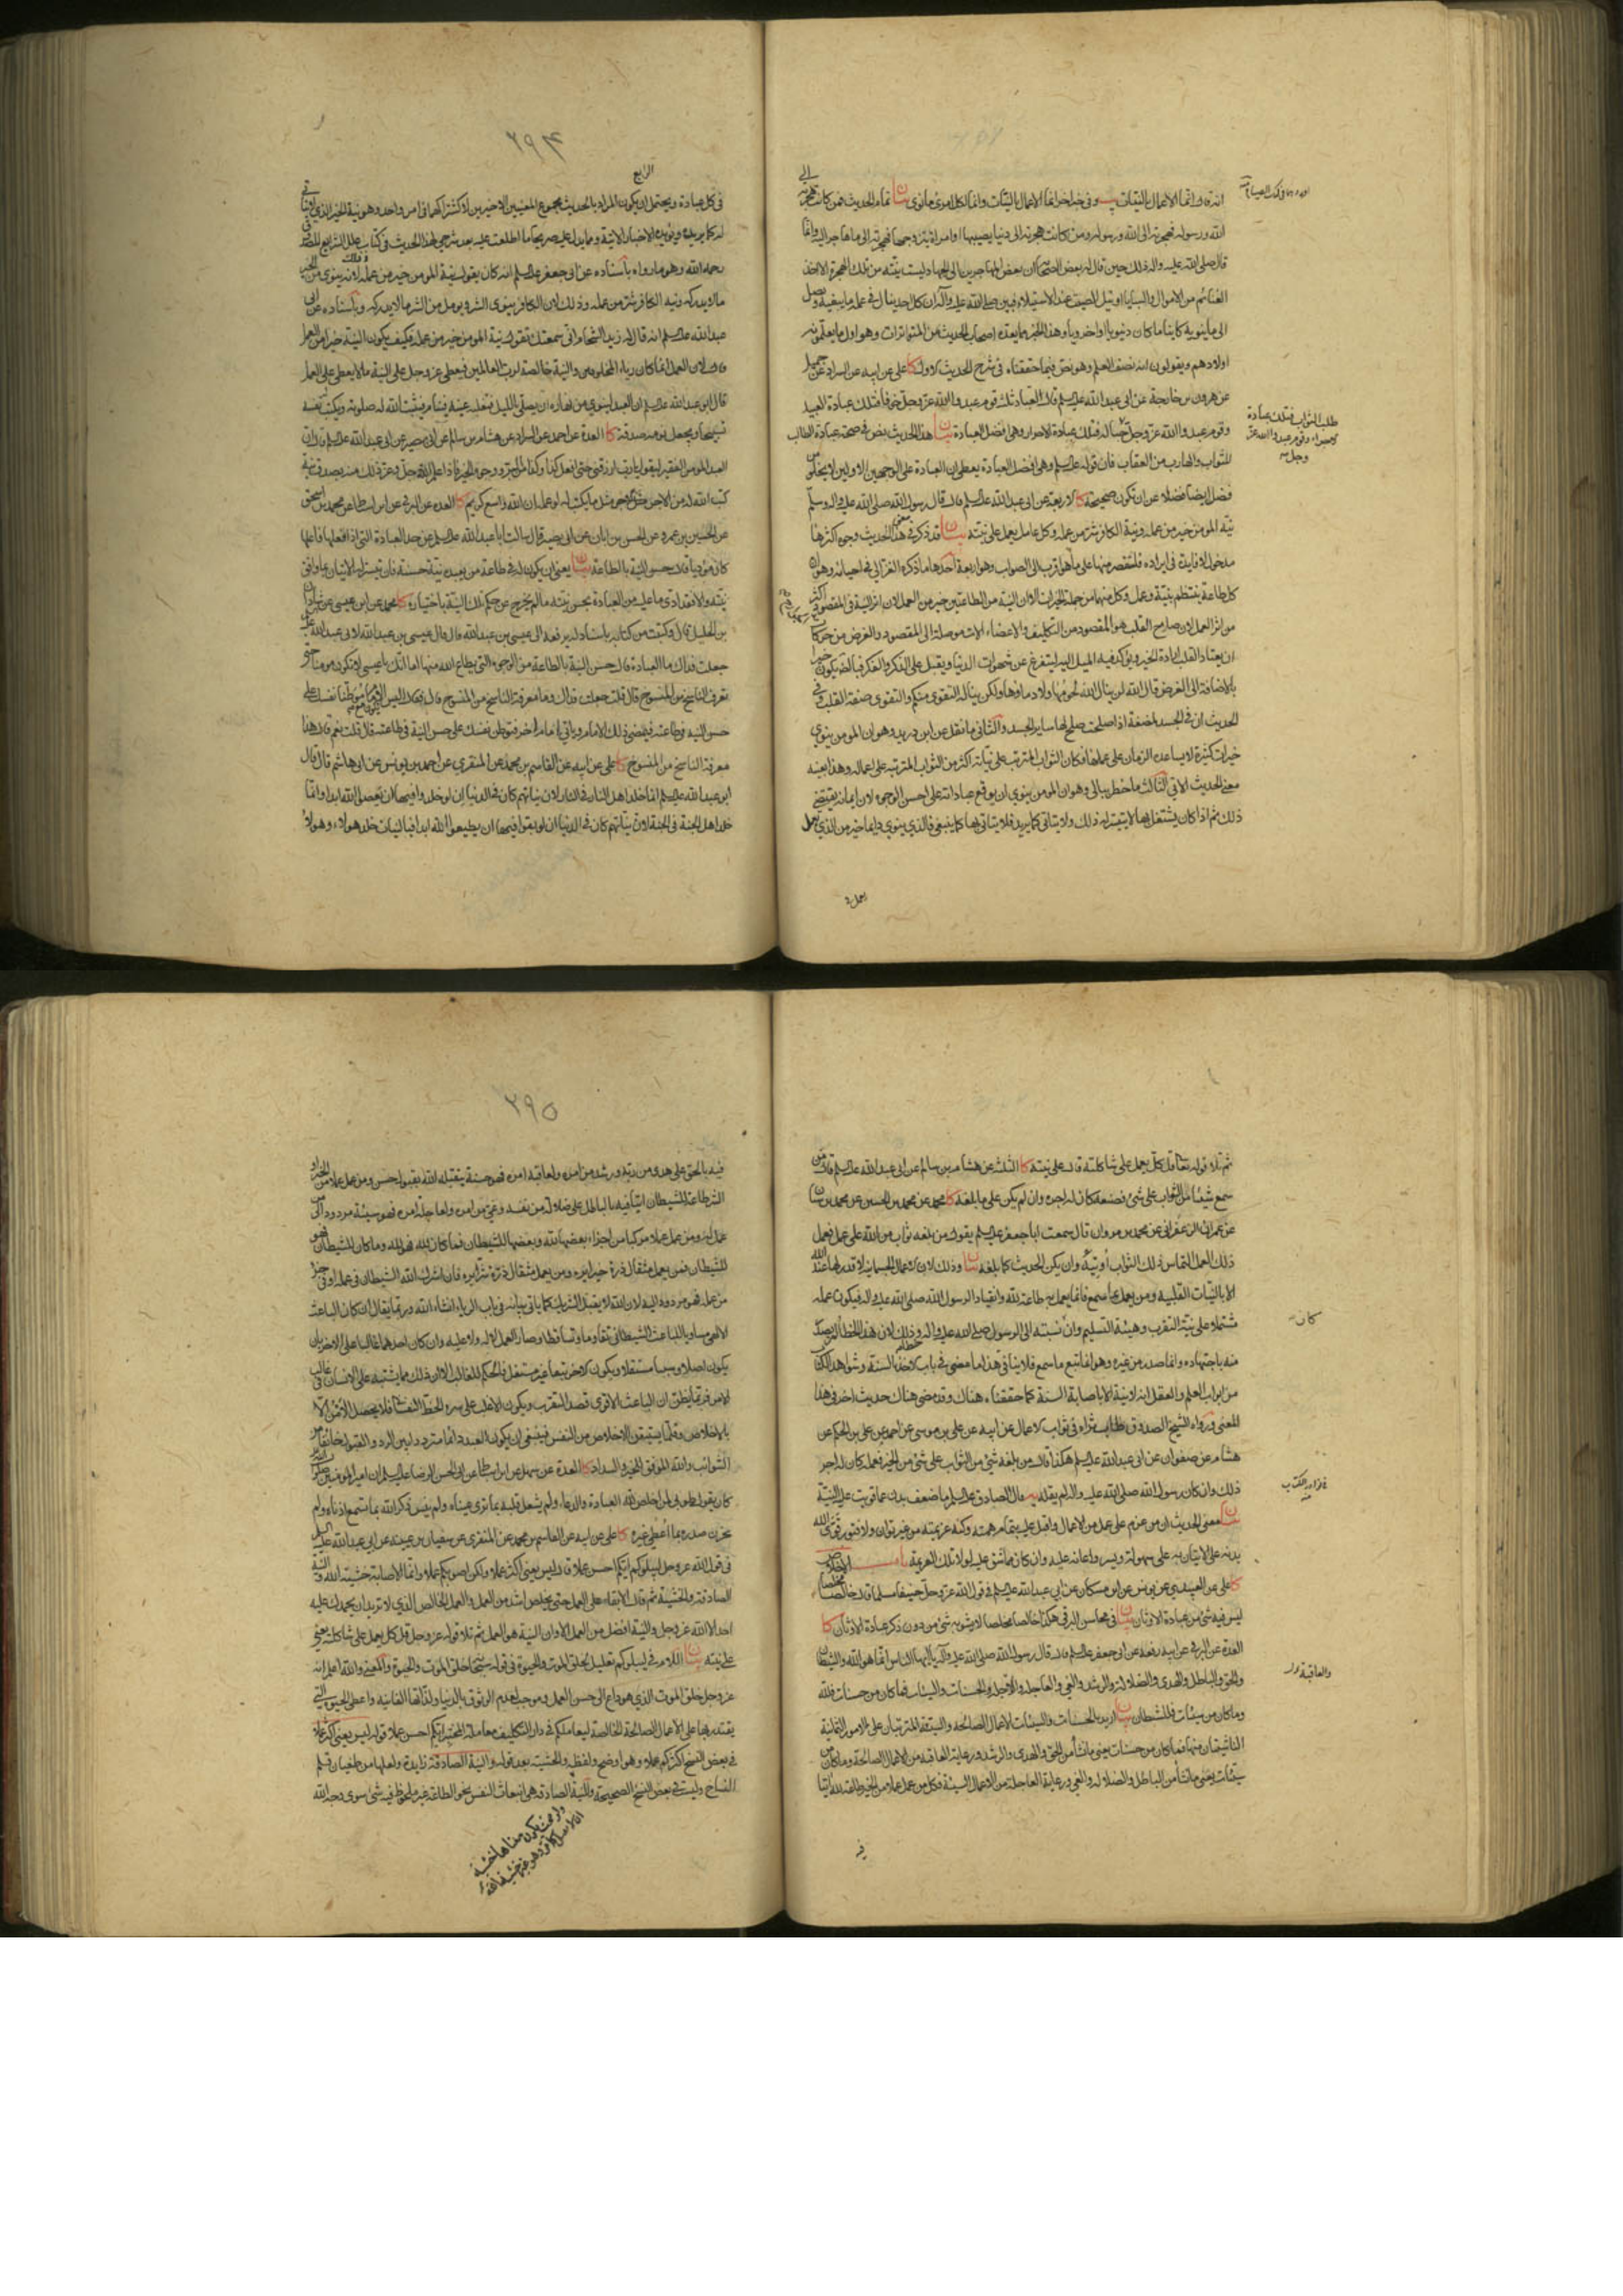 انه قال انما الاعمال بالنيات يب وفي خبر اخر انما الاعمال بالنيات وانما لكل امرئ مانوى بيان تمام الحديث فمن كانت هجرته الى
الله ورسوله فهجرته الى الله ورسوله ومن كانت هجرته الى دنيا يصيبها او امراة يتزوجها فهجرته الى ما هاجر اليه وانما
قال صلى الله عليه واله ذلك حين قال له بعض الصحابة ان بعض المهاجرين الى الجهاد ليست نيته من تلك الهجرة الا اخذ
الغنائم من الاموال والسبايا او نيل الصيت عند الاستيلاء فبين صلى الله عليه وآله ان كل احد ينال في عمله ما يبغيه ويصل
الى ما ينويه كاينا ما كان دنيويا او اخرويا وهذا الخبر مما يعده اصحاب الحديث من المتواترات وهو اول ما يعلمونه
اولادهم ويقولون انه نصف العلم وهو نص فيما حققناه في شرح الحديث الاول كا علي عن ابيه عن السراد عن جميل
عن هرون بن خارجة عن ابي عبد الله عليه السلم قال العباد ثلثة قوم عبدوا الله عز وجل خوفا فتلك عبادة العبيد
طلب الثواب فتلك عبادة
الاجراء وقوم عبدوا الله عز
وجل
وقوم عبدوا الله عز وجل حبا له فتلك عبادة الاحرار وهي افضل العبادة بيان هذا الحديث نص في صحة عبادة الطالب
للثواب والهارب من العقاب فان قوله عليه السلم وهي افضل العبادة يعطي ان العبادة على الوجهين الاولين لا يخلو من
فضل ايضا فضلا عن ان تكون صحيحة كا الاربعة عن ابي عبد الله عليه السلم قال قال رسول الله صلى الله عليه واله وسلم
نية المومن خير من عمله ونية الكافر شر من عمله وكل عامل يعمل على نيته بيان قد ذكر في معنى هذا الحديث وجوه اكثرها
مدخول لا فايدة في ايراده فلنقتصر منها على ما هو اقرب الى الصواب وهو اربعة احدها ما ذكره الغزالي في احيائه وهو ان
كل طاعة ينتظم بنية وعمل وكل منهما من جملة الخيرات الا ان النية من الطاعتين خير من العمل لان اثر النية في المقصود اكثر
من اثر العمل لان صلاح القلب هو المقصود من التكليف والاعضاء الات موصلة الى المقصود والغرض من حركات
ان يعتاد القلب ارادة الخير ويؤكد فيه الميل اليه ليتفرغ عن شهوات الدنيا ويقبل على الذكر والفكر فبالضرورة يكون خيرا
بالاضافة الى الغرض قال الله لن ينال الله لحومها ولا دماؤها ولكن يناله التقوى منكم والتقوى صفة القلب وفي
الحديث ان في الجسد لمضغة اذا صلحت صلح لها ساير الجسد والثاني ما نقل عن ابن دريد وهو ان المومن ينوي
خيرات كثيرة لا يساعده الزمان على عملها فكان الثواب المترتب على نياته اكثر من الثواب المترتب على اعماله وهذا بعينه
معنى الحديث الاتي الثالث ما خطر ببالي وهو ان المومن ينوي ان يوقع عباداته على احسن الوجوه لان ايمانه يقتضي
ذلك ثم اذا كان يشتغل بها لا يتيسر له ذلك ولا يتاتى كما يريد فلا يتاتى بها كما ينبغي فالذي ينوي دايما خير من الذي يعمل
يعمل
٢٩۴
الرابع
في كل عبادة ويحتمل ان يكون المراد بالحديث مجموع المعنيين الاخيرين لاشتراكهما في امر واحد وهو نية الخير الذي لا يتاتى
له كما يريده ويؤيده الاخبار الاتية ومما يدل عليه صريحا ما اطلعت عليه بعد شرحي لهذا الحديث في كتاب علل الشرايع للصدوق
رحمه الله وهو ما رواه باسناده عن ابي جعفر عليه السلم انه كان يقول نية المومن خير من عمله وذلك لانه ينوي من الخير
ما لا يدركه ونية الكافر شر من عمله وذلك لان الكافر ينوي الشر ويومل من الشر ما لا يدركه وباسناده عن ابي
عبد الله عليه السلم انه قال له زيد الشحام اني سمعتك تقول نية المومن خير من عمله فكيف يكون النية خيرا من العمل
قال لان العمل انما كان رياء المخلوقين والنية خالصة لرب العالمين فيعطي عز وجل على النية ما لا يعطي على العمل
قال ابو عبد الله عليه السلم ان العبد لينوي من نهاره ان يصلي بالليل فتغلبه عينه فينام فيثبت الله له صلوته ويكتب نفسه
تسبيحا ويجعل نومه صدقة كا العدة عن احمد عن السراد عن هشام بن سالم عن ابي بصير عن ابي عبد الله عليه السلم قال ان
العبد المومن الفقير ليقول يا رب ارزقني حتى افعل كذا وكذا من البر ووجوه الخير فاذا علم الله جل وعز ذلك منه بصدق نية
كتب الله له من الاجر مثل ما يكتب له لو عمله ان الله واسع كريم كا العدة عن البرقي عن ابن اسباط عن محمد بن اسحق
عن الحسين بن عمرو عن الحسن بن ابان عن ابي بصير قال سالت ابا عبد الله عليه السلم عن حد العبادة التي اذا فعلها فاعلها
كان مؤديا قال حسن النية بالطاعة بيان يعني ان يكون له في طاعة من يعبده نية حسنة فان تيسر له الاتيان بما وافق
نيته والا فقد ادى ما عليه من العبادة بحسن نيته ما لم يخرج عن حكم تلك النية باختياره كا محمد عن ابن عيسى عن شاذان
بن الخليل قال وكتبت من كتابه باسناد له يرفعه الى عيسى بن عبد الله قال قال عيسى بن عبد الله لابي عبد الله عليه
جعلت فداك ما العبادة قال حسن النية بالطاعة من الوجوه التي يطاع الله منها اما انك يا عيسى لا تكون مومنا حتى
تعرف الناسخ من المنسوخ قال قلت جعلت فداك وما معرفة الناسخ من المنسوخ قال فقال اليس تكون مع الامام موطنا نفسك على
حسن النية في طاعته فيمضي ذلك الامام وياتي امام اخر فتوطن نفسك على حسن النية في طاعته قال قلت نعم قال هذا
معرفة الناسخ من المنسوخ كا علي عن ابيه عن القاسم بن محمد عن المنقري عن احمد بن يونس عن ابي هاشم قال قال
ابو عبد الله عليه السلم انما خلد اهل النار في النار لان نياتهم كان في الدنيا ان لو خلدوا فيها ان يعصوا الله ابدا وانما
خلد اهل الجنة في الجنة لان نياتهم كان في الدنيا ان لو بقوا فيها ان يطيعوا الله ابدا فبالنيات خلد هولاء وهولاء
ثم تلا قوله تعالى قل كل يعمل على شاكلته قال على نيته كا الثلثة عن هشام بن سالم عن ابي عبد الله عليه السلم قال من
سمع شيئا من الثواب على شيء فصنعه كان له اجره وان لم يكن على ما بلغه كا محمد عن محمد بن الحسين عن محمد بن سنان
عن عمران الزعفراني عن محمد بن مروان قال سمعت ابا جعفر عليه السلم يقول من بلغه ثواب من الله على عمل فعمل
ذلك العمل التماس ذلك الثواب اوتيه وان لم يكن الحديث كما بلغه بيان وذلك لان الاعمال الجسمانية لا قدر لها عند الله
الا بالنيات القلبية ومن يعمل بما سمع فانما يعمل به طاعة لله وانقيادا لرسول الله صلى الله عليه واله فيكون عمله
كان
مشتملا على نية التقرب وهيئة التسليم وان نسبته الى الرسول صلى الله عليه واله وذلك لان هذا الخطا لم يصدر
منه باجتهاده وانما صدر من غيره وهو انما تبع ما سمع فلا ينافي هذا ما مضى في باب الاخذ بالسنة وشواهد الكتاب
من ابواب العلم والعقل انه لا نية الا باصابة السنة كما حققناه هناك وقد مضى هناك حديث اخر في هذا
المعنى ورواه الشيخ الصدوق طاب ثراه في ثواب الاعمال عن ابيه عن علي بن موسى عن احمد عن علي بن الحكم عن
هشام عن صفوان عن ابي عبد الله عليه السلم هكذا قال من بلغه شيء من الثواب على شيء من الخير فعمله كان له اجر
ذلك وان كان رسول الله صلى الله عليه واله لم يقله يه قال الصادق عليه السلم ما ضعف بدن عما قويت عليه النية
بيان معنى الحديث ان من عزم على عمل من الاعمال واقبل عليه بتمام همته وكنه عزيمته من غير توان ولا فتور قوى الله
بدنه على الاتيان به على سهولة ويسر واعانه عليه وان كان مما شق عليه لولا تلك العزيمة باب الاخلاص
كا علي عن العبيدي عن يونس عن ابن مسكان عن ابي عبد الله عليه السلم في قول الله عز وجل حنيفا مسلما قال خالصا مخلصا
ليس فيه شيء من عبادة الاوثان بيان في محاسن البرقي هكذا خالصا مخلصا لا يشوبه شيء من دون ذكر عبادة الاوثان كا
العدة عن البرقي عن ابيه رفعه عن ابي جعفر عليه السلم قال قال رسول الله صلى الله عليه وآله يا ايها الناس انما هو الله والشيطان
والعاقبة
والحق والباطل والهدى والضلالة والرشد والغي والعاجلة والاجلة والحسنات والسيئات فما كان من حسنات فلله
وما كان من سيئات فللشيطان بيان اريد بالحسنات والسيئات الاعمال الصالحة والسيئة المترتبتان على الامور الثمانية
الناشيتان منها فما كان من حسنات يعني ما نشأ من الحق والهدى والرشد ورعاية العاقبة من الاعمال الصالحة وما كان من
سيئات يعني ما نشأ من الباطل والضلالة والغي ورعاية العاجلة من الاعمال السيئة فكل من عمل عملا من الخير طاعة لله اتيا
فيه
٢٩٥
فيه بالحق على هدى من ربه ورشد من امره ولعاقبة امره فهو حسنة يتقبله الله بقبول حسن ومن عمل عملا من الخير او
الشر طاعة للشيطان اتيا فيه بالباطل على ضلالة من نفسه وغي من امره ولعاجلة امره فهو سيئة مردود الى من
عمل له ومن عمل عملا مركبا من اجزاء بعضها لله وبعضها للشيطان فما كان لله فهو لله وما كان للشيطان فهو
للشيطان فمن يعمل مثقال ذرة خيرا يره ومن يعمل مثقال ذرة شرا يره فان اشرك بالله الشيطان في عمله او في جزء
من عمله فهو مردود اليه لان الله لا يقبل الشريك كما ياتي بيانه في باب الرياء انشاء الله وربما يقال ان كان الباعث
الالهي مساويا للباعث الشيطاني تقاوما وتساقطا وصار العمل لا له ولا عليه وان كان احدهما غالبا على الاخر بان
يكون اصلا وسببا مستقلا ويكون الاخر تبعا غير مستقل فالحكم للغالب الا ان ذلك مما يشتبه على الانسان في غالب
الامر فربما يظن ان الباعث الاقوى قصد التقرب ويكون الاغلب على سره الحظ النفساني فلا يحصل الامن الا
بالاخلاص وقلما يستيقن الاخلاص من النفس فينبغي ان يكون العبد دائما مترددا بين الرد والقبول خائفا من
الشوائب والله الموفق للخير والسداد كا العدة عن سهل عن ابن اسباط عن ابي الحسن الرضا عليه السلم ان امير المومنين صلوات الله عليه
كان يقول طوبى لمن اخلص لله العبادة والدعاء ولم يشغل قلبه بما ترى عيناه ولم ينس ذكر الله بما تسمع اذناه ولم
يحزن صدره بما اعطي غيره كا علي عن ابيه عن القاسم بن محمد عن المنقري عن سفيان بن عيينة عن ابي عبد الله عليه السلم
في قول الله عز وجل ليبلوكم ايكم احسن عملا قال ليس يعني اكثر عملا ولكن اصوبكم عملا وانما الاصابة خشية الله والنية
الصادقة والخشية ثم قال الابقاء على العمل حتى يخلص اشد من العمل والعمل الخالص الذي لا تريد ان يحمدك عليه
احد الا الله عز وجل والنية افضل من العمل الا وان النية هو العمل ثم تلا قوله عز وجل قل كل يعمل على شاكلته يعني
على نيته بيان اللام في ليبلوكم تعليل لخلق الموت والحيوة في قوله سبحانه خلق الموت والحيوة والمعنى والله اعلم انه
عز وجل خلق الموت الذي هو داع الى حسن العمل وموجب لعدم الوثوق بالدنيا ولذاتها الفانية واعطى الحيوة التي
يقتدر بها على الاعمال الصالحة الخالصة ليعاملكم في دار التكليف معاملة المختبر ايكم احسن عملا قوله ليس يعني اكثر عملا
في بعض النسخ اكثركم عملا وهو اوضح ولفظة والخشية بعد قوله والنية الصادقة زايدة ولعلها من طغيان قلم
النساخ وليست في بعض النسخ الصحيحة والنية الصادقة هي انبعاث النفس نحو الطاعة غير ملحوظ فيه شيء سوى وجه الله